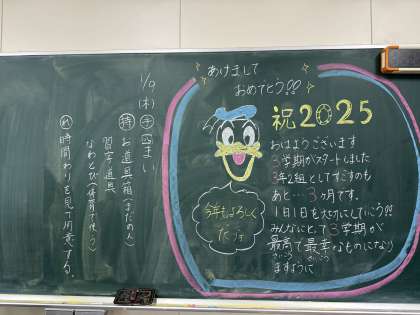 あけまして
おめでとう!!
祝2025
おはようございます
3学期がスタートしました
3年2組としてすごすのも
あと…3ヶ月です。
1日1日を大切にしていこう!!
みんなにとって3学期が
最高で最幸なものになり
さいこう さいこう
ますように
今年もよろしく
1/9(木)
四まい
持 お道具箱(まだの人)
習字道具
なわとび(体育で使う)
れ 時間わりを見て用意する。